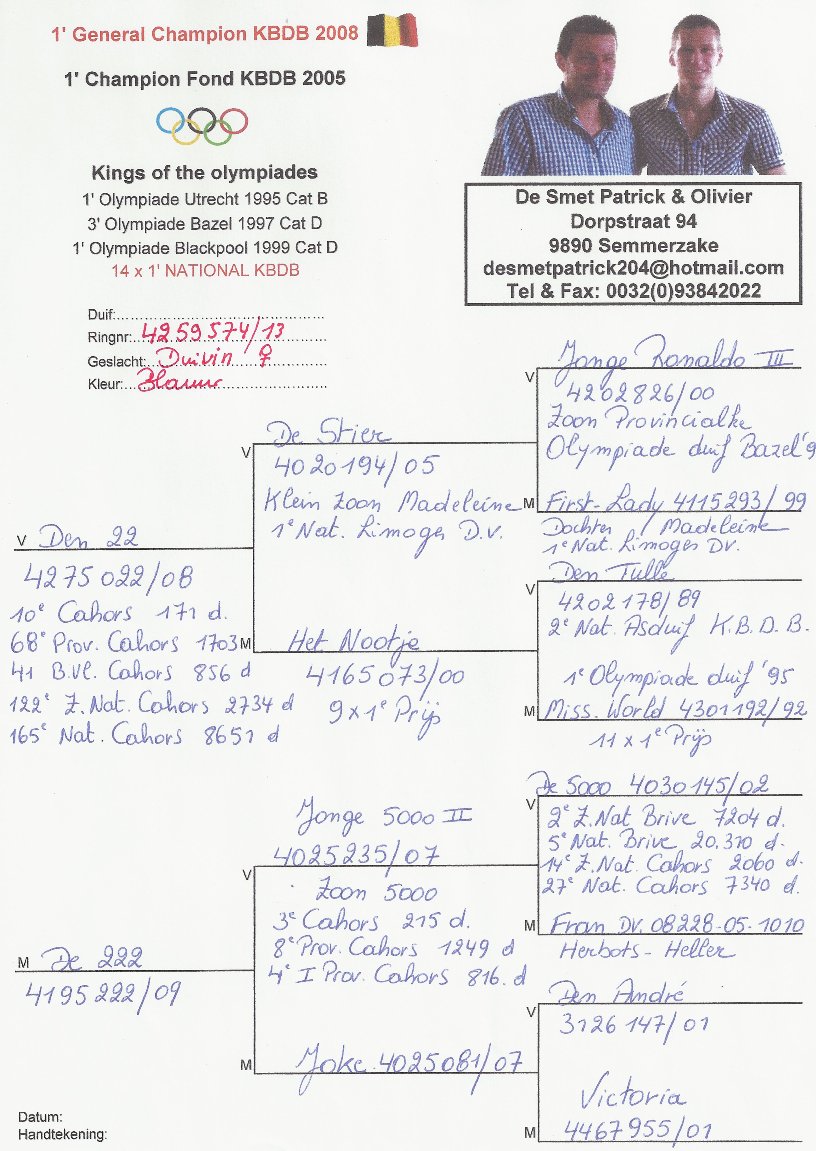 1' General Champion KBDB 2008
1' Champion Fond KBDB 2005
Kings of the olympiades
1' Olympiade Utrecht 1995 Cat B
3' Olympiade Bazel 1997 Cat D
1' Olympiade Blackpool 1999 Cat D
14 x 1' NATIONAL KBDB
De Smet Patrick & Olivier
Dorpstraat 94
9890 Semmerzake
desmetpatrick204@hotmail.com
Tel & Fax: 0032(0)93842022
Duif:
Ringnr: 4259574/13
Geslacht: Duivin ♀
Kleur: Blauw
V Den 22
4275022/08
10e Cahors 171 d.
68e Prov. Cahors 1703
41 B.Vl. Cahors 856 d
122e Z.Nat. Cahors 2734 d
165e Nat. Cahors 8651 d
V De Stier
4020194/05
Klein Zoon Madeleine
1e Nat. Limoges D.V.
M Het Nootje
4165073/00
9 x 1e Prijs
V Jonge Ronaldo III
4202826/00
Zoon Provincialke
Olympiade duif Bazel '9
M First-Lady 4115293/99
Dochter Madeleine
1e Nat. Limoges DV.
V Den Tulle
4202178/89
2e Nat. Asduif K.B.D.B.
1e Olympiade duif '95
M Miss. World 4301192/92
11 x 1e Prijs
M De 222
4195222/09
V Jonge 5000 II
4025235/07
Zoon 5000
3e Cahors 215 d.
8e Prov. Cahors 1249 d
4e I Prov. Cahors 816. d
M Joke 4025081/07
V De 5000 4030145/02
2e Z.Nat Brive 7204 d.
5e Nat. Brive 20,310 d.
14e Z.Nat. Cahors 2060 d.
27e Nat. Cahors 7340 d.
M Fran DV. 08228-05-1010
Herbots - Heller
V Den André
3126147/01
M Victoria
4467955/01
Datum:
Handtekening: